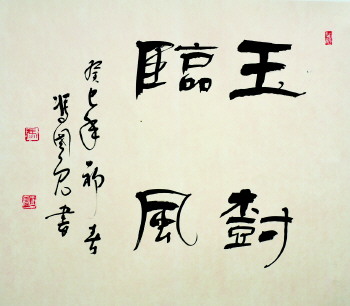 玉樹
臨風
癸巳年初春
書